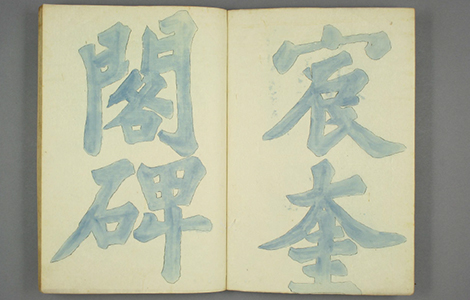 宸奎
閣碑